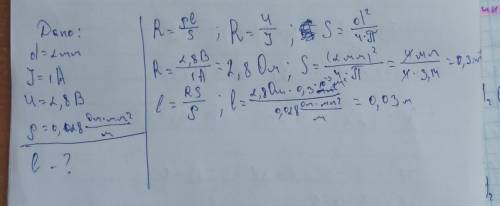 Дано:
d = 2мм
J = 1А
U = 2,8В
ρ = 0,028 Ом·мм²/м
l - ?
R = ρl/S ; R = U/J ; S = d²/4·П
R = 2,8В/1А = 2,8 Ом ; S = (2мм)²/4·П = 4мм/4·3,14 = 0,3м
l = RS/ρ ; l = 2,8Ом · 0,3 / 0,028 Ом·мм²/м = 0,03 м